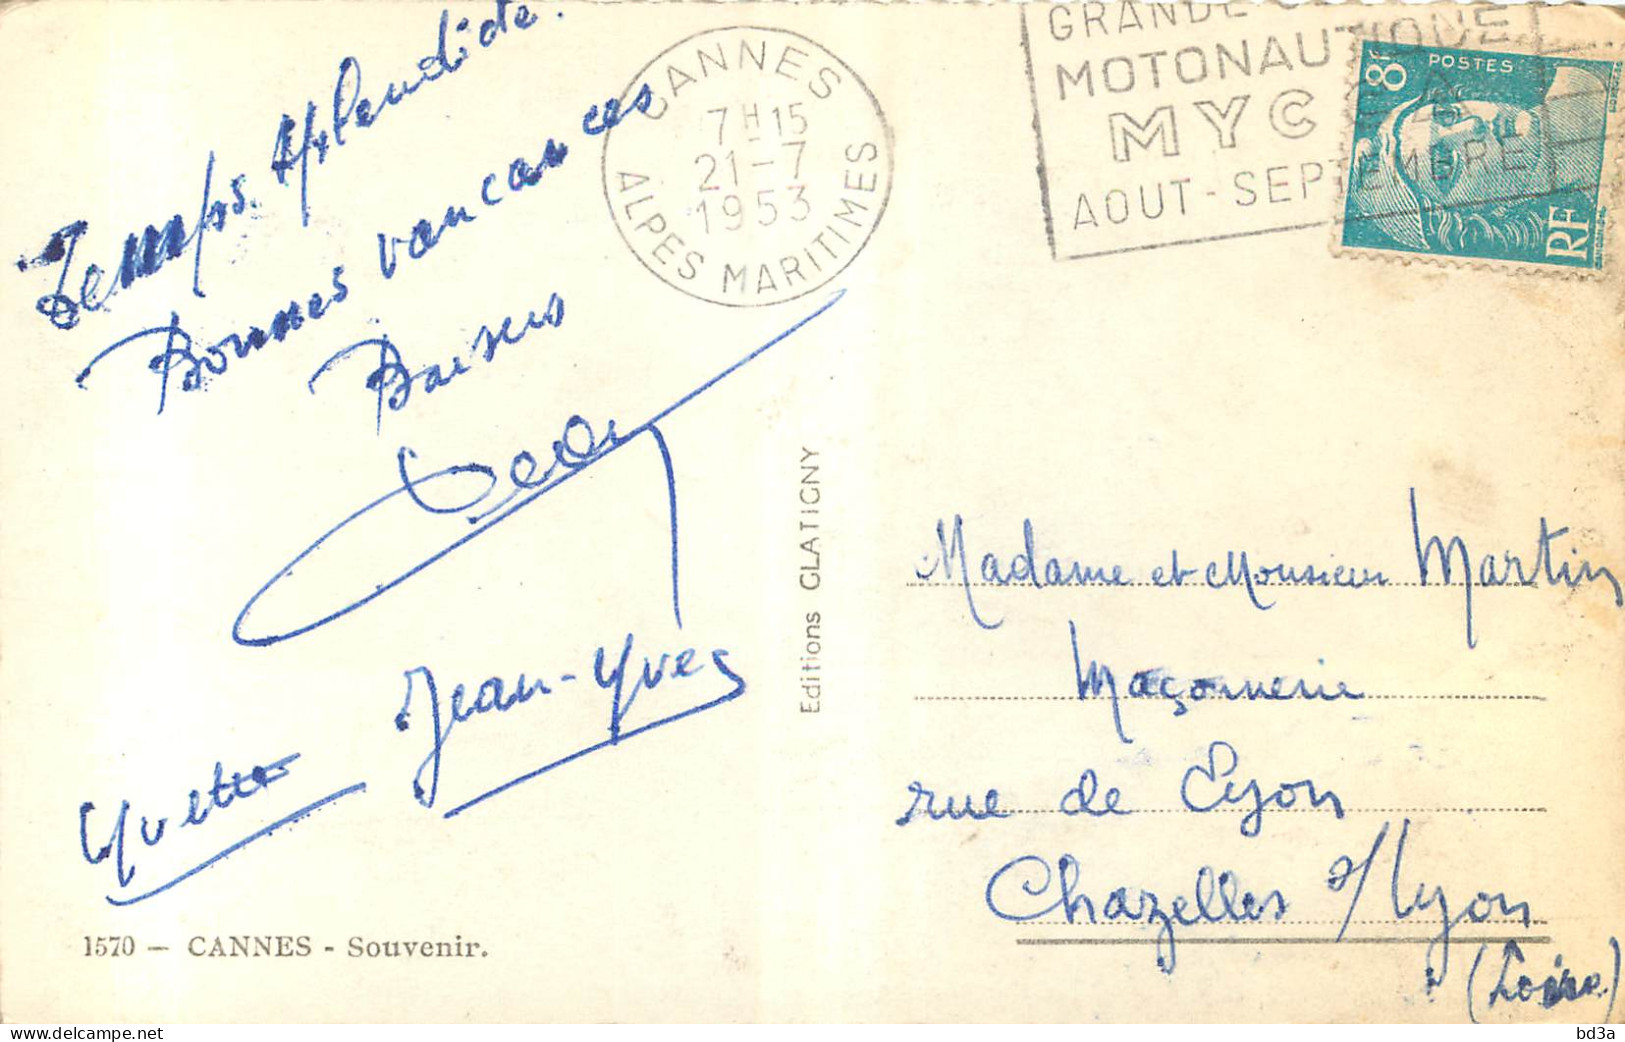 Temps splendide.
Bonnes vancances
Baisers
Jean-Yves
Yvette
1570 — CANNES - Souvenir.
Editions GLATIGNY
CANNES
7H15
21-7
1953
ALPES MARITIMES
GRANDE
MOTONAUTIQUE
MYC
AOUT-SEPTEMBRE
8F
POSTES
RF
Madame et Monsieur Martin
Maçonnerie
rue de Lyon
Chazelles s/Lyon
(Loire)
bd3a